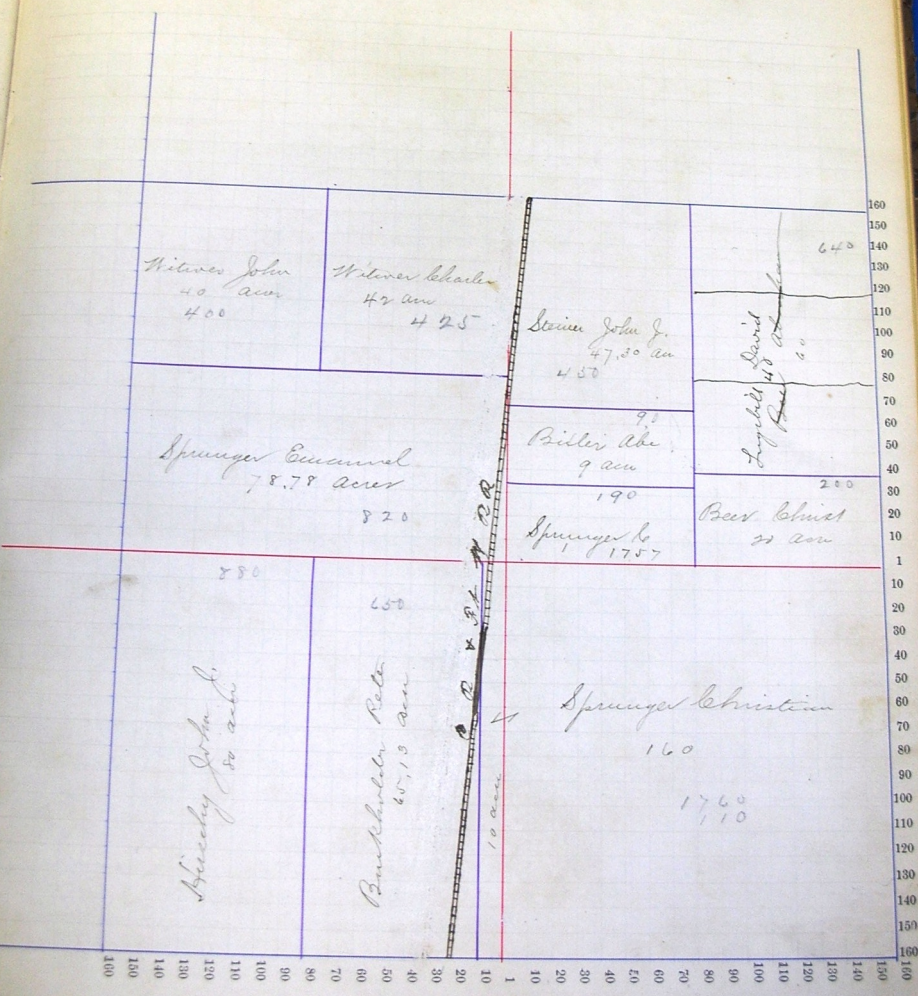 Witwer John
40 acres
400
Witwer Charles
42 acr
425
Steiner John J.
47,50 acr
450
640
David
40
60
Sprunger Emanuel
78.78 acres
820
90
Bixler Abe
9 acr
190
Sprunger C
1757
200
Beer Christ
20 acre
R R
880
John J.
80 acre
650
Burkholder Peter
65,13 acre
10 acre
Sprunger Christian
160
1760
110
160
150
140
130
120
110
100
90
80
70
60
50
40
30
20
10
1
10
20
30
40
50
60
70
80
90
100
110
120
130
140
150
160
160 150 140 130 120 110 100 90 80 70 60 50 40 30 20 10 1 10 20 30 40 50 60 70 80 90 100 110 120 130 140 150 160